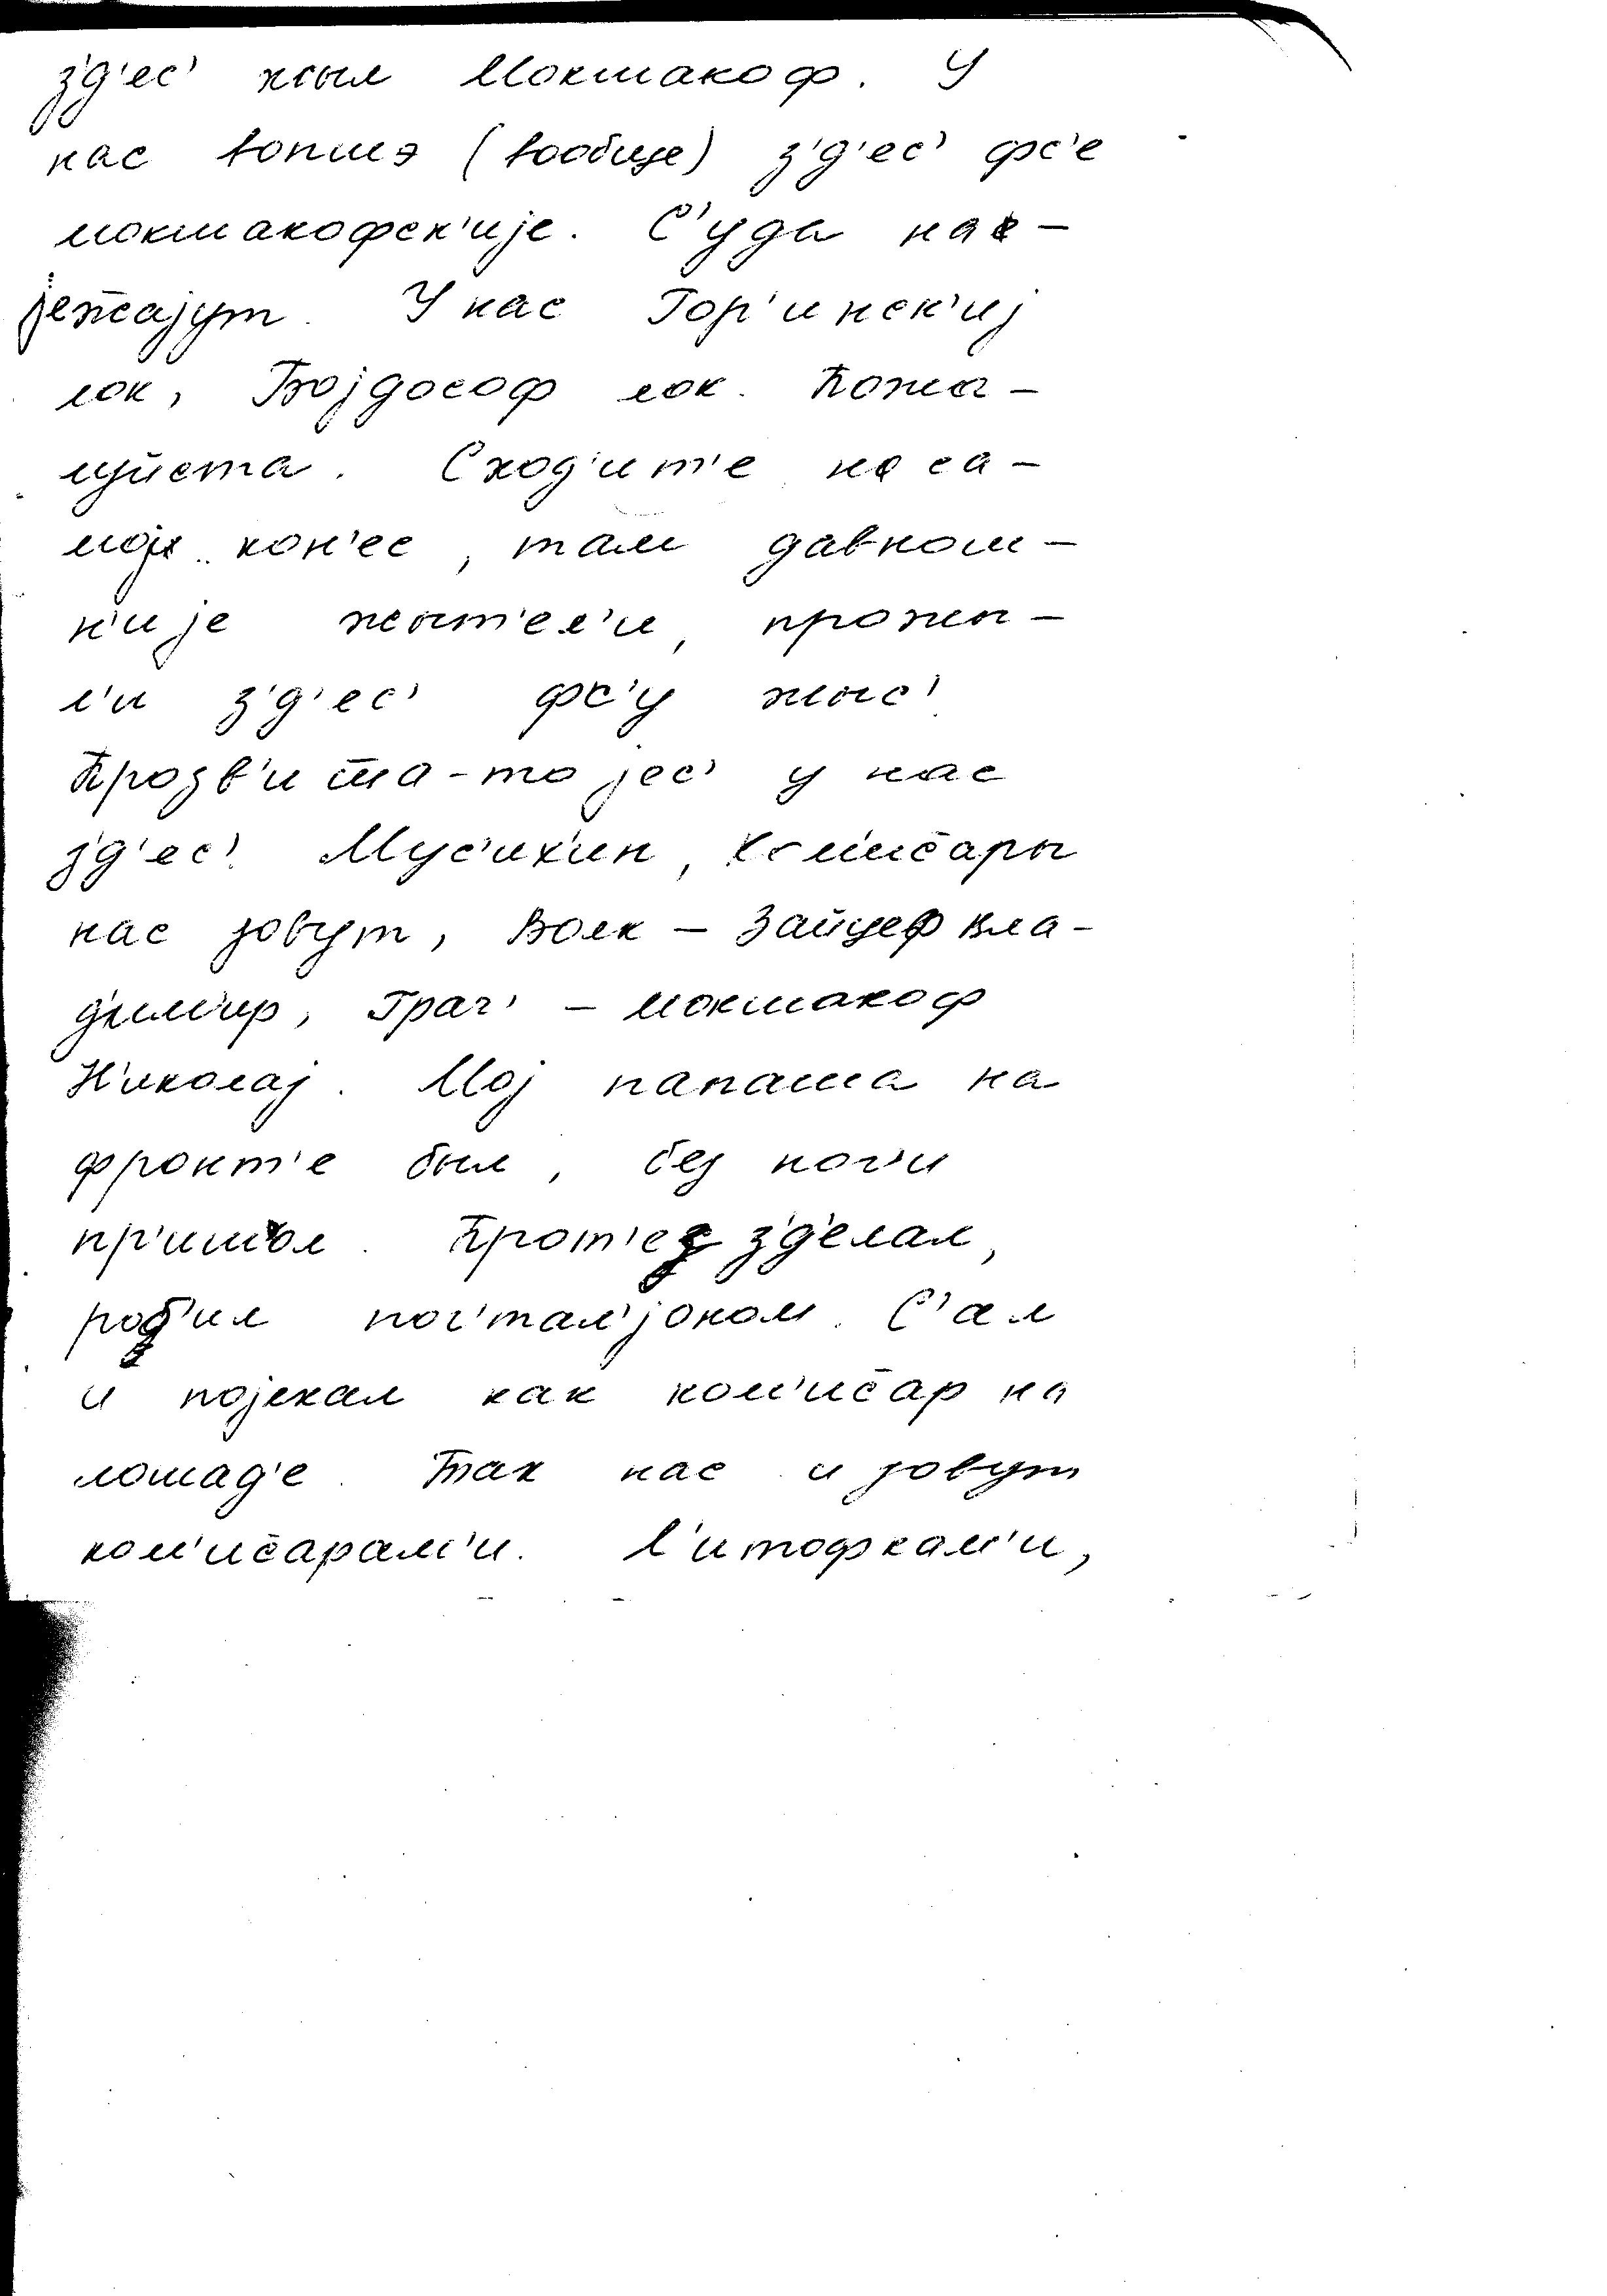 з'д'ес' жыл Мокшаков. У
нас вопшэ (вообще) з'д'ес' фс'е
мокшакофск'ије. С'уда на-
јежајут. У нас Гор'инск'иј
лок, Војдософ лок. Пожа-
луйста. Сход'ит'е на са-
мој кон'ес, там давнош-
н'ије жыт'ел'и, прожы-
л'и з'д'ес' фс'у жыс'.
Прозв'ишша-то јес' у нас
з'д'ес'. Мус'ихин,
нас зовут, Волк – Зайцеф Вла-
д'им'ир, Грач' – Мокшакоф
Н'иколај. Мој папаша на
фронт'е был, без ног'и
пр'ишол. Прот'ез з'д'елал,
роб'ил поч'тал'јоном. С'ал
и појехал как ком'исар на
лошад'е. Так нас и зовут
ком'исарам'и. Л'итофкам'и,